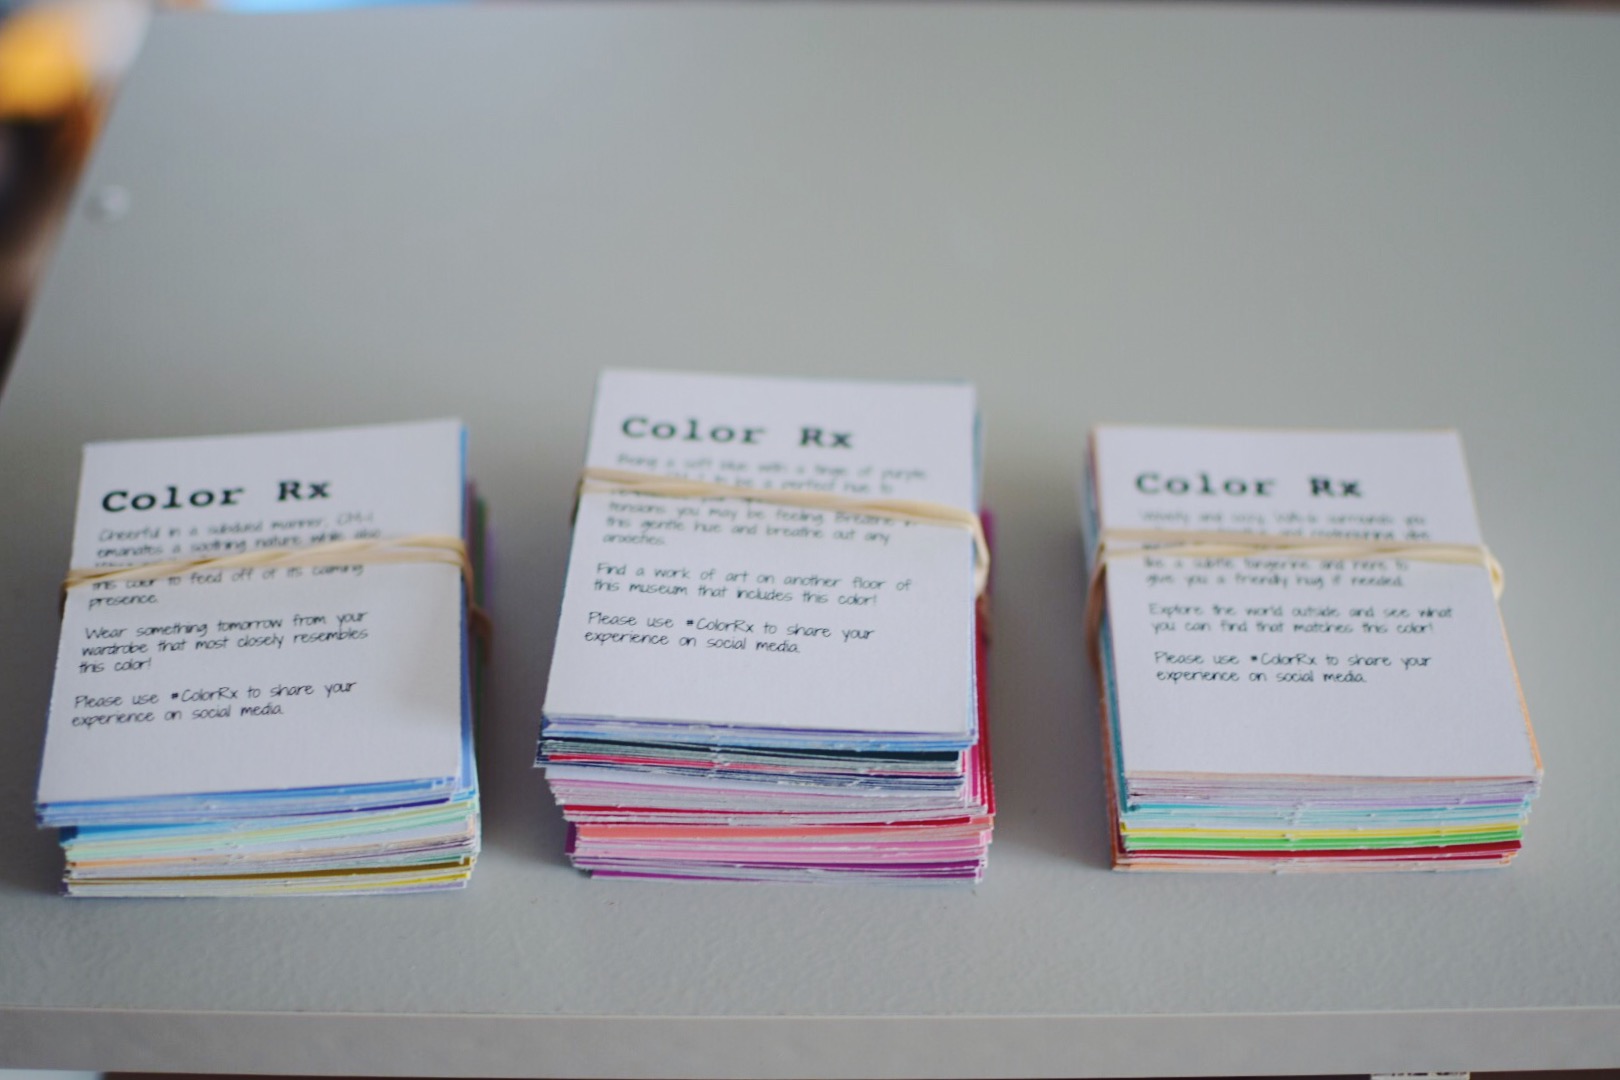 Color Rx
Cheerful in a subdued manner,
emanates a soothing nature while also
this color to feed off of its calming
presence.
Wear something tomorrow from your
wardrobe that most closely resembles
this color!
Please use #ColorRx to share your
experience on social media.
Color Rx
Being a soft blue with a tinge of purple,
to be a perfect hue to
tensions you may be feeling. Breathe in
this gentle hue and breathe out any
anxieties.
Find a work of art on another floor of
this museum that includes this color!
Please use #ColorRx to share your
experience on social media.
Color Rx
Velvety and cozy, surrounds you
like a subtle tangerine and here to
give you a friendly hug if needed.
Explore the world outside and see what
you can find that matches this color!
Please use #ColorRx to share your
experience on social media.